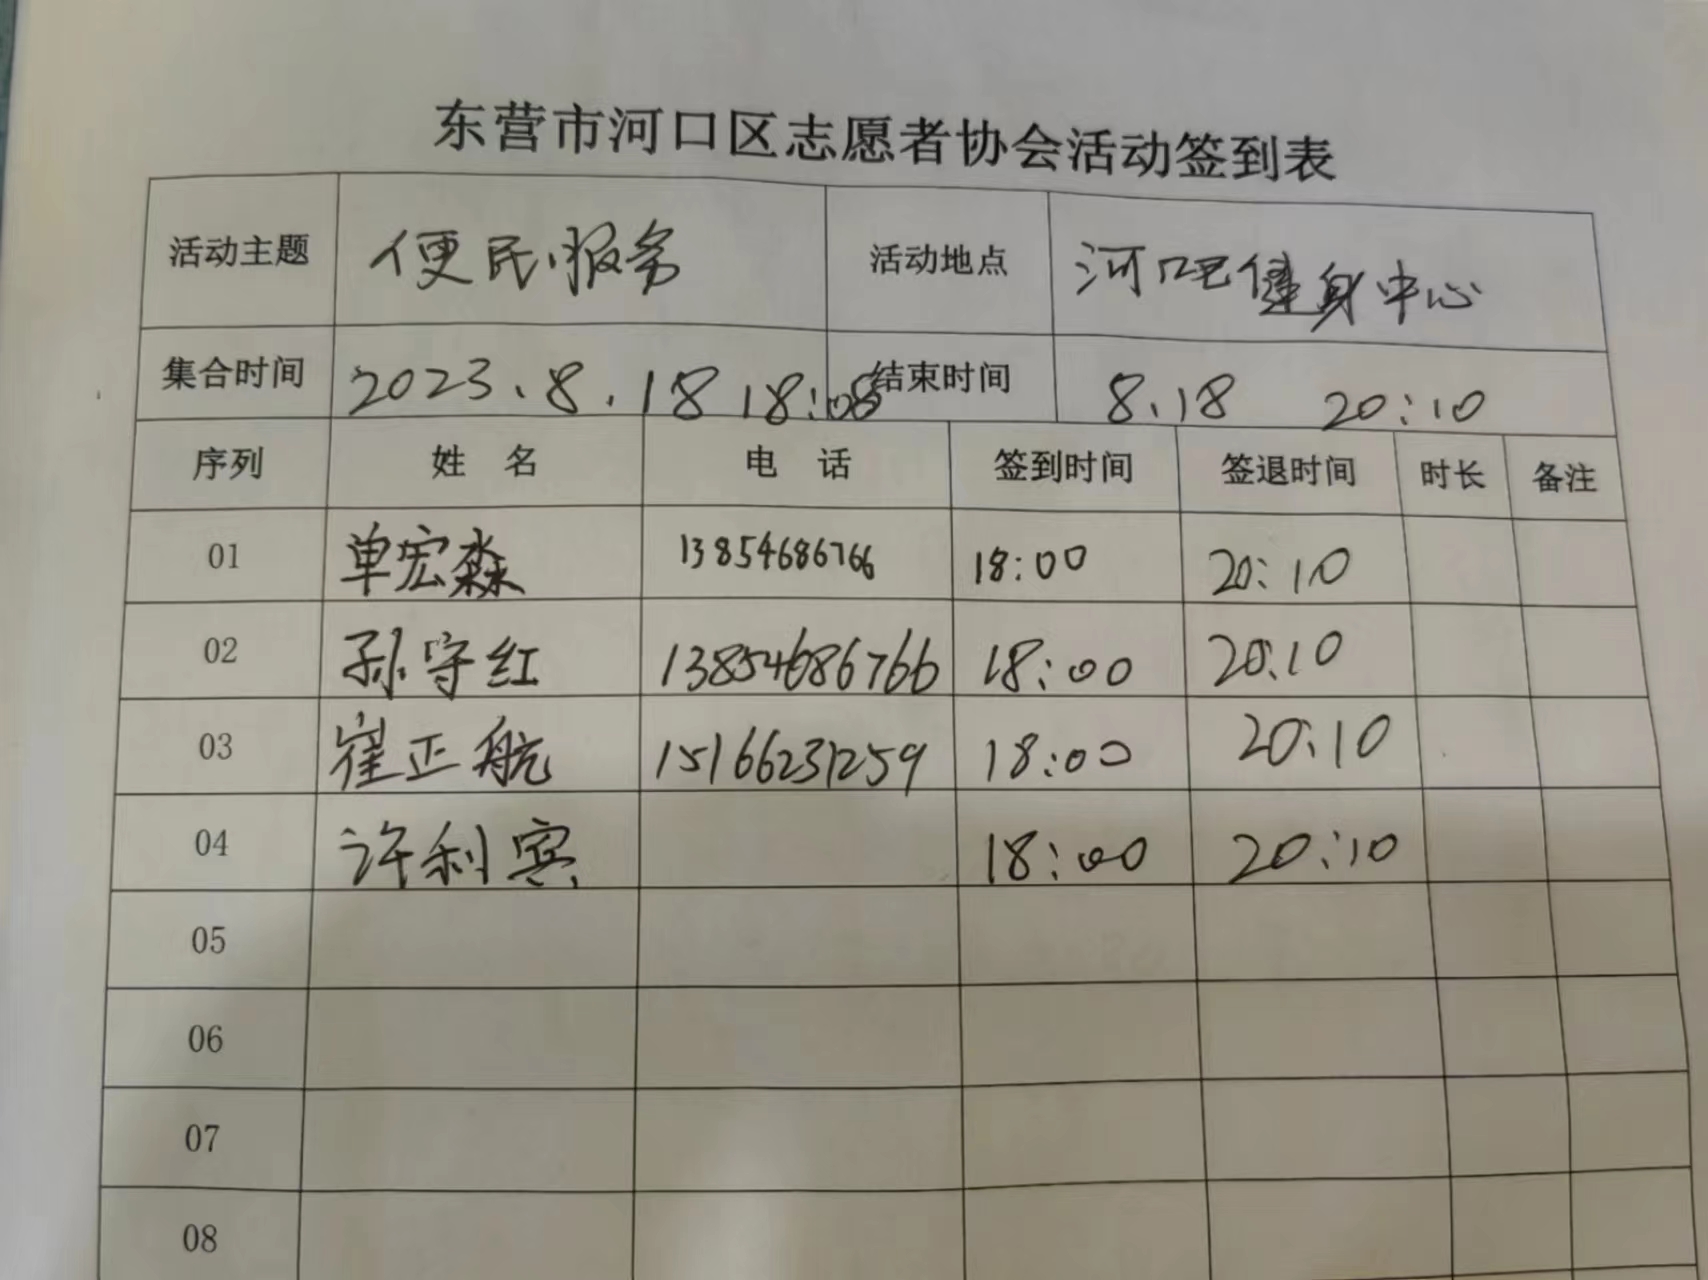 东营市河口区志愿者协会活动签到表
活动主题 便民服务 活动地点 河口区健身中心
集合时间 2023.8.18 18:00 结束时间 8.18 20:10
序列 姓 名 电 话 签到时间 签退时间 时长 备注
01 单宏淼 13854686766 18:00 20:10
02 孙守红 13854686766 18:00 20:10
03 崔正航 15166231259 18:00 20:10
04 许利宾 18:00 20:10
05
06
07
08